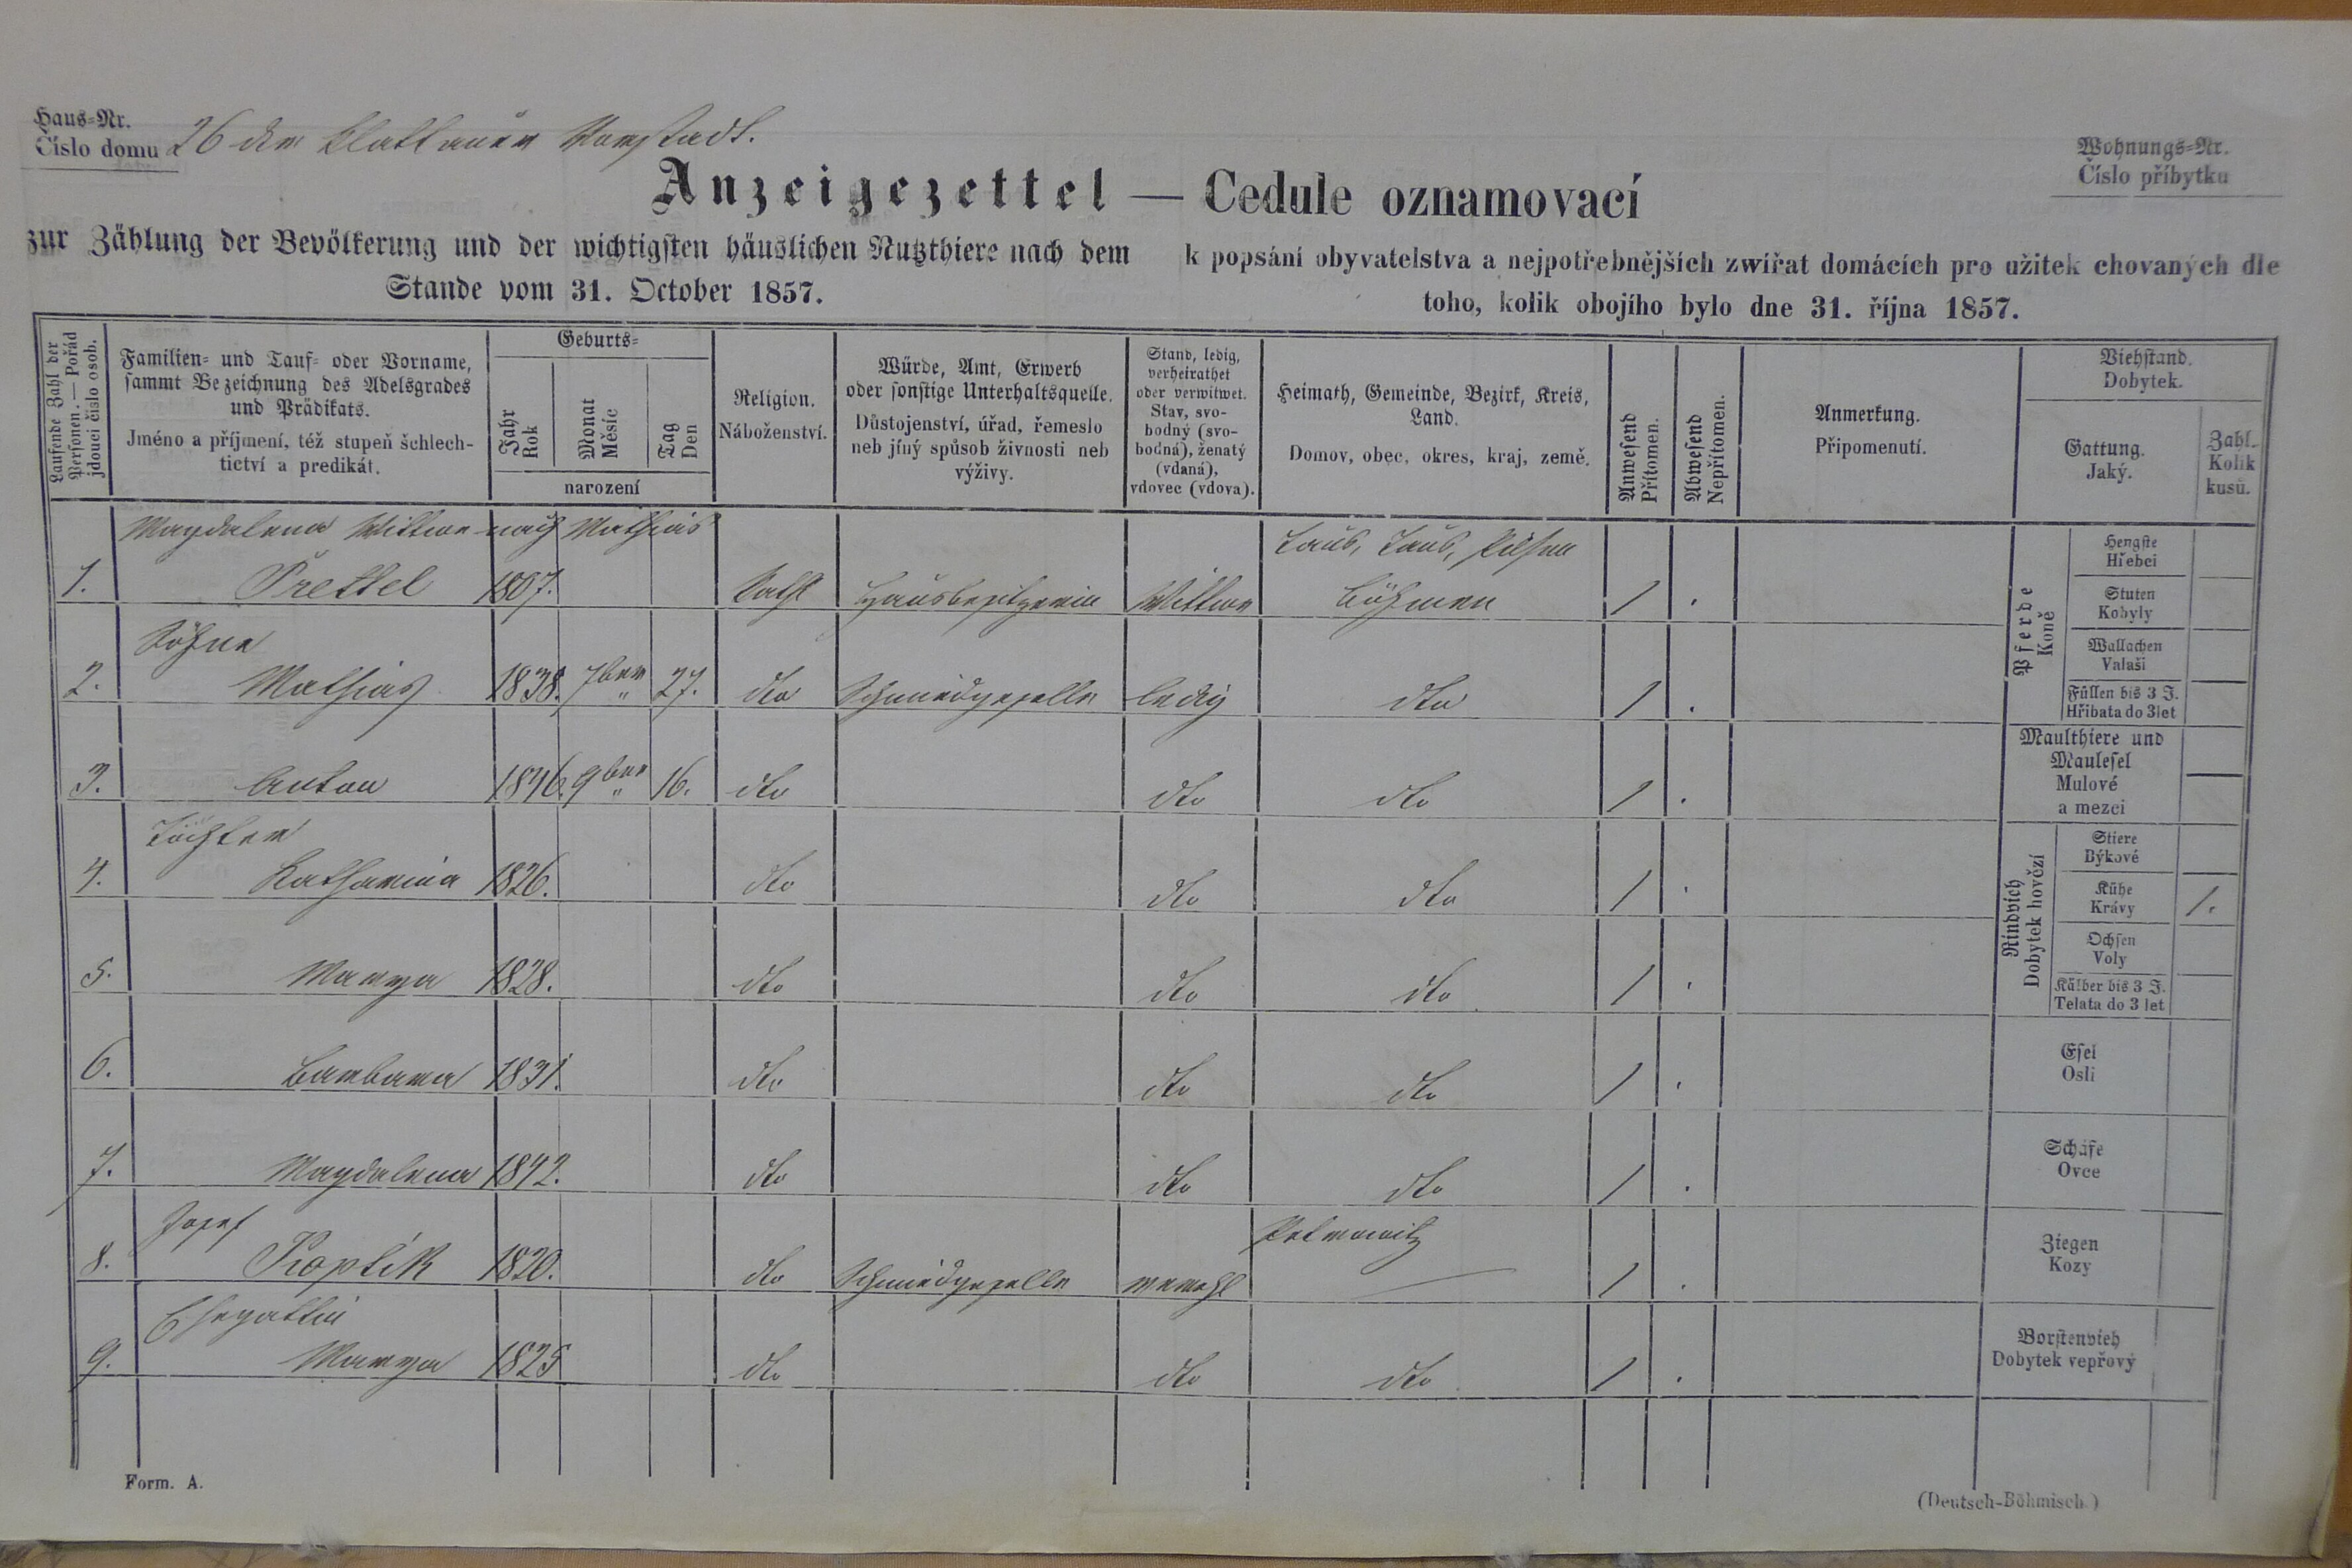 Haus-Nr.
Číslo domu 26 der Klattauer Vorstadt.
Wohnungs-Nr.
Číslo příbytku
Anzeigezettel — Cedule oznamovací
zur Zählung der Bevölkerung und der wichtigsten häuslichen Nutzthiere nach dem
Stande vom 31. October 1857.
k popsání obyvatelstva a nejpotřebnějších zwířat domácích pro užitek chovaných dle
toho, kolik obojího bylo dne 31. října 1857.
Laufende Zahl der
Personen. — Pořád
jdoucí číslo osob.
Familien- und Tauf- oder Vorname,
sammt Bezeichnung des Adelsgrades
und Prädikats.
Jméno a příjmení, též stupeň šchlech-
tictví a predikát.
Geburts-
Jahr
Rok
Monat
Měsíc
Tag
Den
narození
Religion.
Náboženství.
Würde, Amt, Erwerb
oder sonstige Unterhaltsquelle.
Důstojenství, úřad, řemeslo
neb jíný spůsob živnosti neb
výživy.
Stand, ledig,
verheirathet
oder verwitwet.
Stav, svo-
bodný (svo-
bodná), ženatý
(vdaná),
vdovec (vdova).
Heimath, Gemeinde, Bezirk, Kreis,
Land.
Domov, obec, okres, kraj, země.
Anwesend
Přítomen.
Abwesend
Nepřítomen.
Anmerkung.
Připomenutí.
Viehstand.
Dobytek.
Gattung.
Jaký.
Zahl.
Kolik
kusů.
Magdalena Wittwe nach Mathias Taus, Taus, Pilsen
1. Prettel 1807. Kath Hausbesitzerin Wittwe Böhmen / .
Söhne
2. Mathias 1838. 7ber " 27. dto Schmiedgeselle ledig dto / .
3. Anton 1846. 9ber " 16. dto dto dto / .
Töchter
4. Katharina 1826. dto dto dto / .
5. Marya 1828. dto dto dto / .
6. Barbara 1831. dto dto dto / .
7. Magdalena 1842. dto dto dto / .
Josef
8. Koptik 1820. dto Schmiedgeselle verehl — / .
Ehegattin
9. Marya 1825 dto dto dto / .
Pferde
Koně
Hengste
Hřebci
Stuten
Kobyly
Wallachen
Valaši
Füllen bis 3 J.
Hříbata do 3 let
Maulthiere und
Maulesel
Mulové
a mezci
Rindvieh
Dobytek hovězí
Stiere
Býkové
Kühe
Krávy 1.
Ochsen
Voly
Kälber bis 3 J.
Telata do 3 let
Esel
Osli
Schafe
Ovce
Ziegen
Kozy
Borstenvieh
Dobytek vepřový
Form. A.
(Deutsch-Böhmisch.)